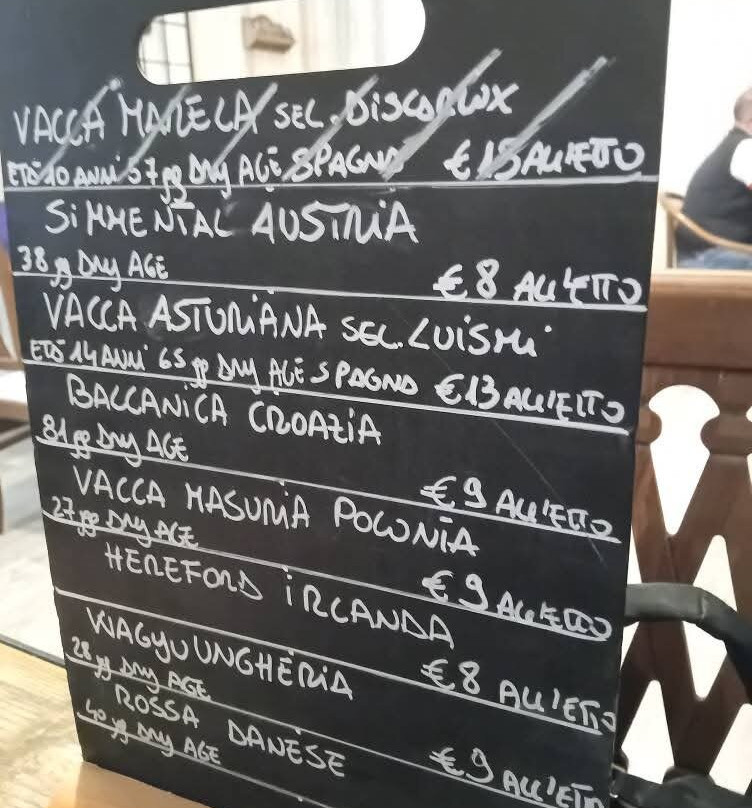 VACCA MANELA SEL. DISCARLUX
ETÀ 10 ANNI 57 gg DRY AGE SPAGNA € 15 ALL'ETTO
SIMMENTAL AUSTRIA
38 gg DRY AGE € 8 ALL'ETTO
VACCA ASTURIANA SEL. LUISMI
ETÀ 14 ANNI 65 gg DRY AGE SPAGNA € 13 ALL'ETTO
BALCANICA CROAZIA
81 gg DRY AGE € 9 ALL'ETTO
VACCA MASURIA POLONIA
27 gg DRY AGE € 9 ALL'ETTO
HEREFORD IRLANDA
€ 8 ALL'ETTO
WAGYU UNGHERIA
28 gg DRY AGE
ROSSA DANESE
40 gg DRY AGE € 9 ALL'ETTO